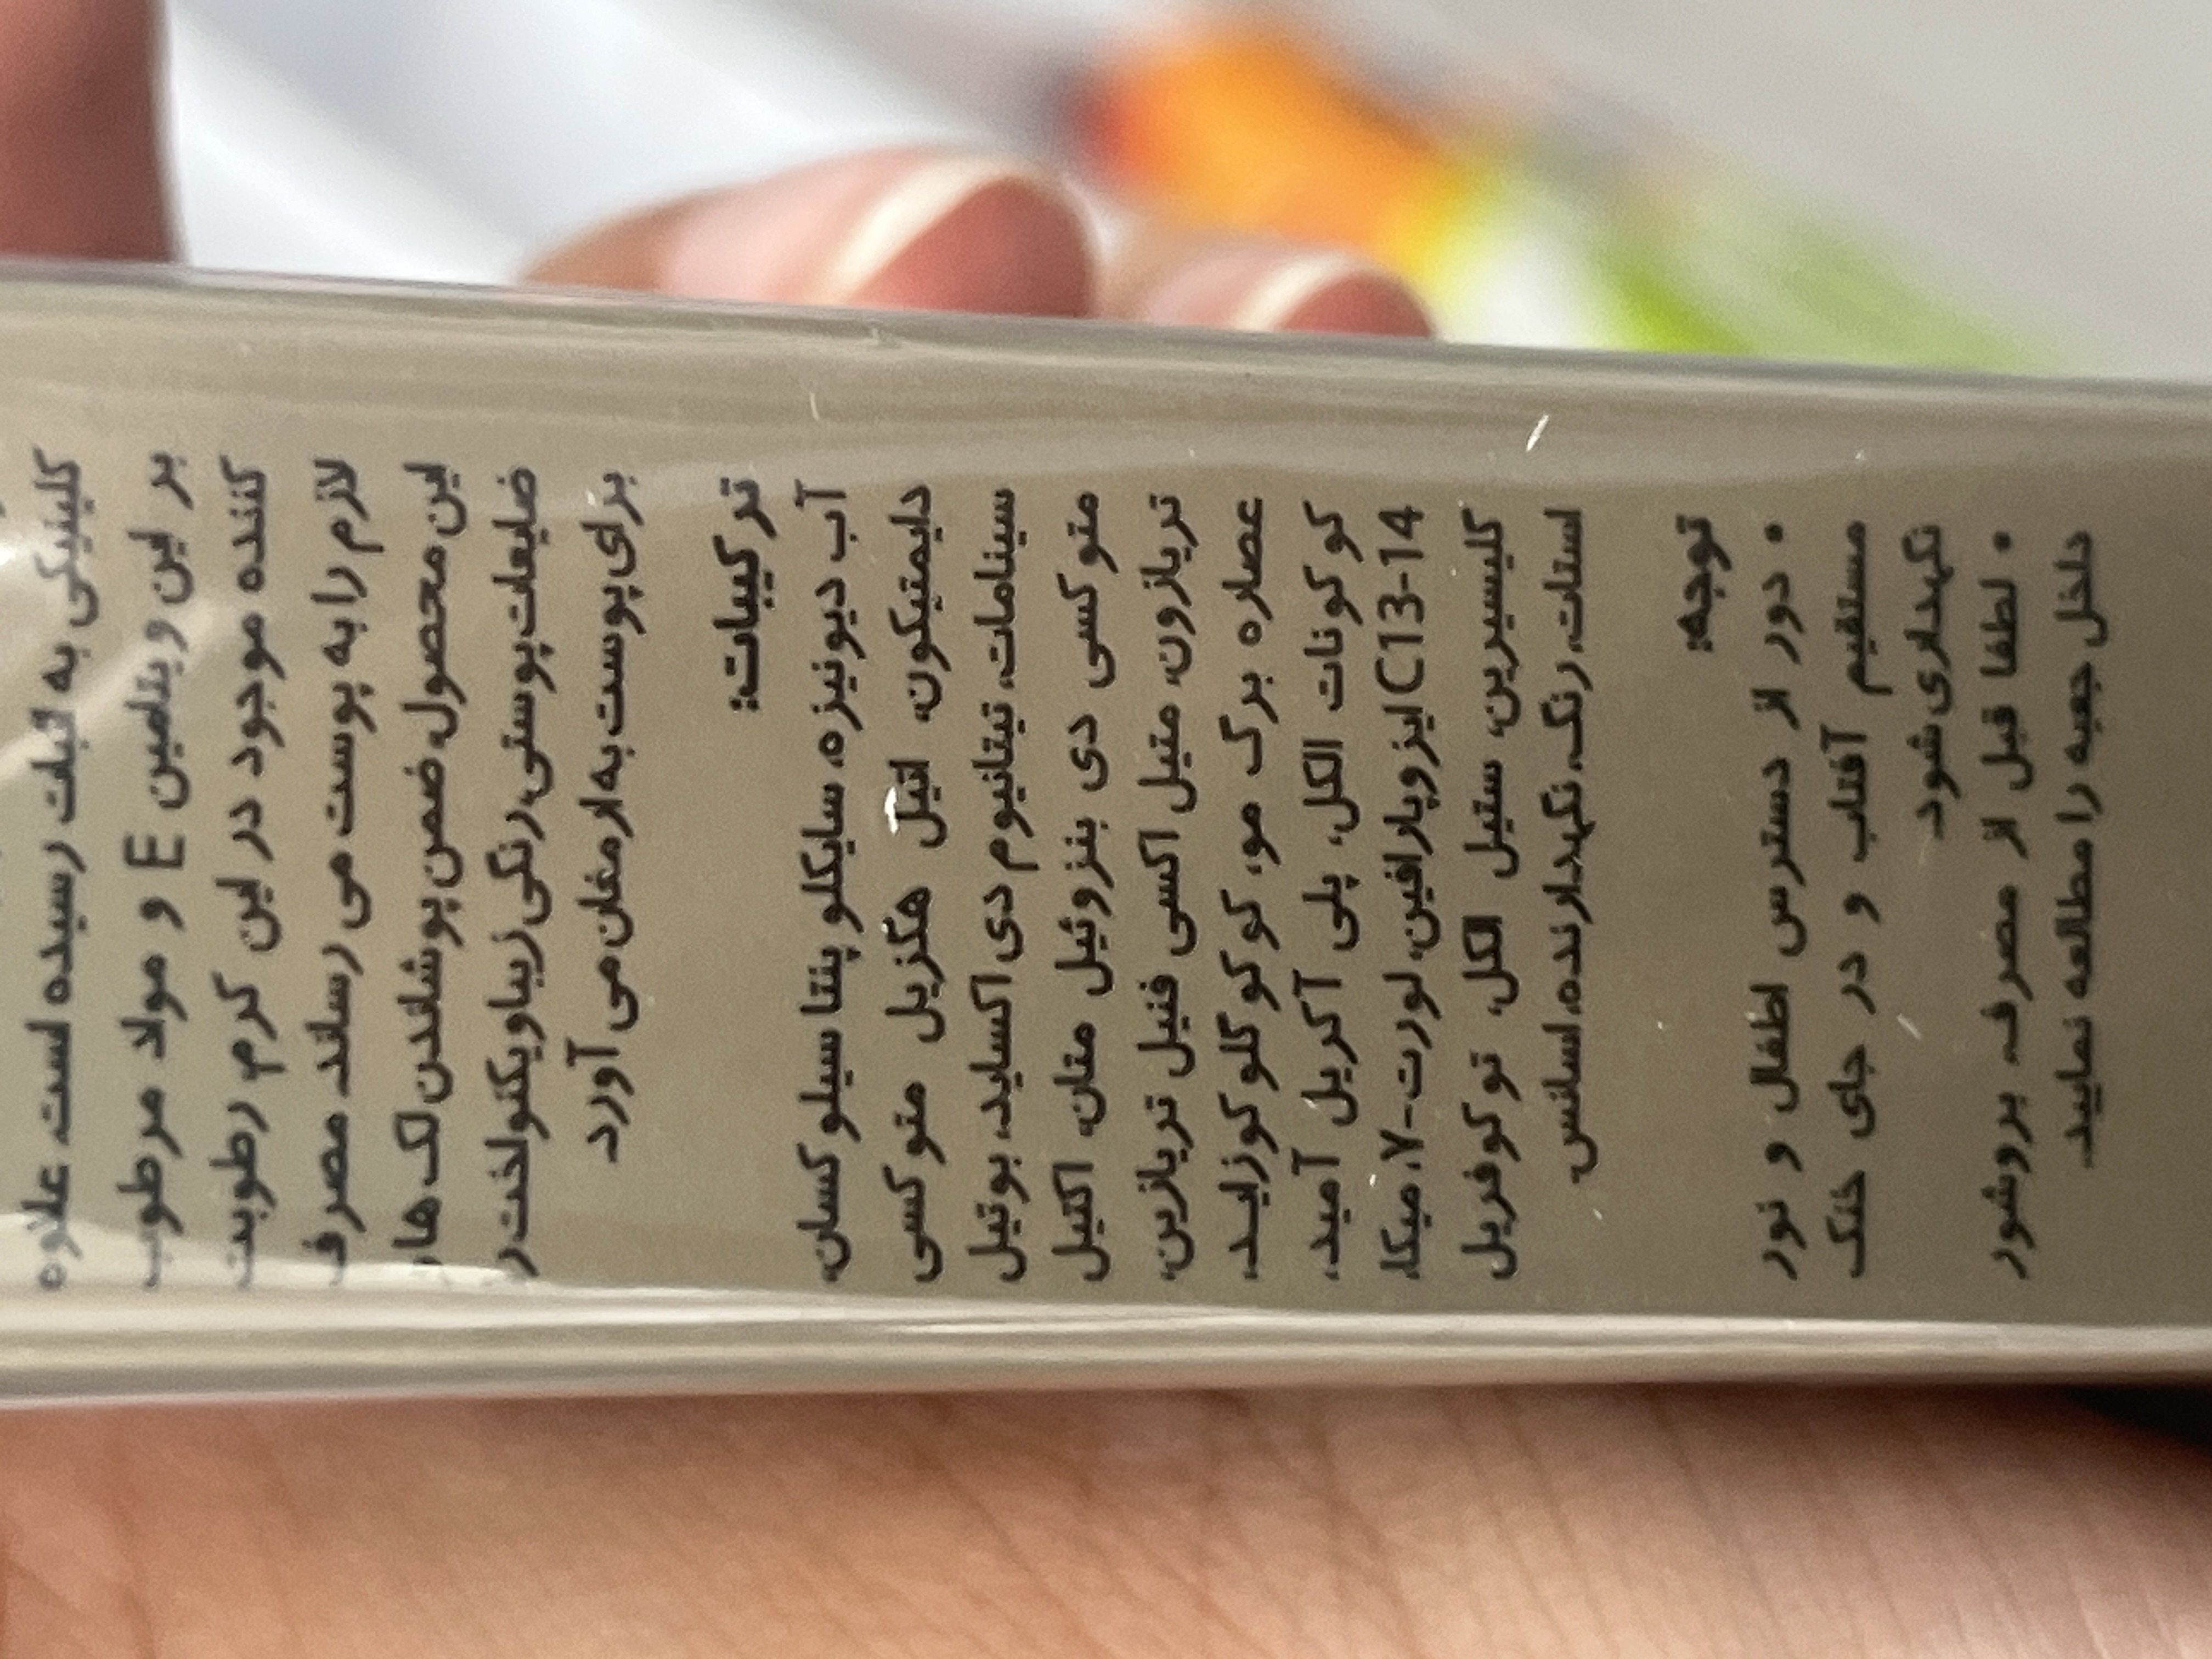 کلینیکی به ثبات رسیده است. علاوه
بر این ویتامین E و مواد مرطوب
کننده موجود در این کرم رطوبت
لازم را به پوست می رساند. مصرف
این محصول، ضمن پوشاندن لک ها،
ضایعات پوستی، رنگی زیبا و یکنواخت ر
برای پوست به ارمغان می آورد
ترکیبات:
آب دیونیزه، سایکلو پنتا سیلوکسان،
دایمتیکون، اتیل هگزیل متوکسی
سینامات، تیتانیوم دی اکساید، بوتیل
متوکسی دی بنزوئیل متان، اکتیل
تریازون، متیل اکسی فنیل تریازین،
عصاره برگ مو، کوکوگلوکوزاید،
کوکونات الکل، پلی آکریل آمید،
C13-14 ایزوپارافین، لورت-۷، میکا،
گلیسیرین، ستیل الکل، توکوفریل
استات، رنگ، نگهدارنده، اسانس.
توجه:
• دور از دسترس اطفال و نور
مستقیم آفتاب و در جای خنک
نگهداری شود.
• لطفا قبل از مصرف، بروشور
داخل جعبه را مطالعه نمایید.